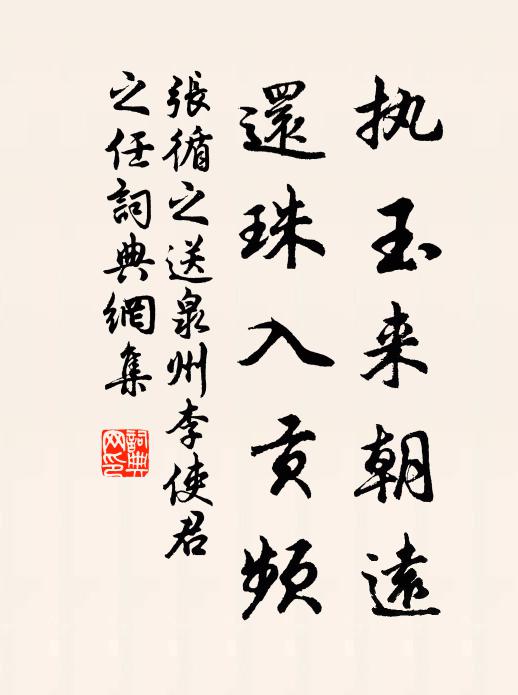 执玉来朝遠
還珠入貢頻
張循之送泉州李使君
之任詞典網集
詞典
网印